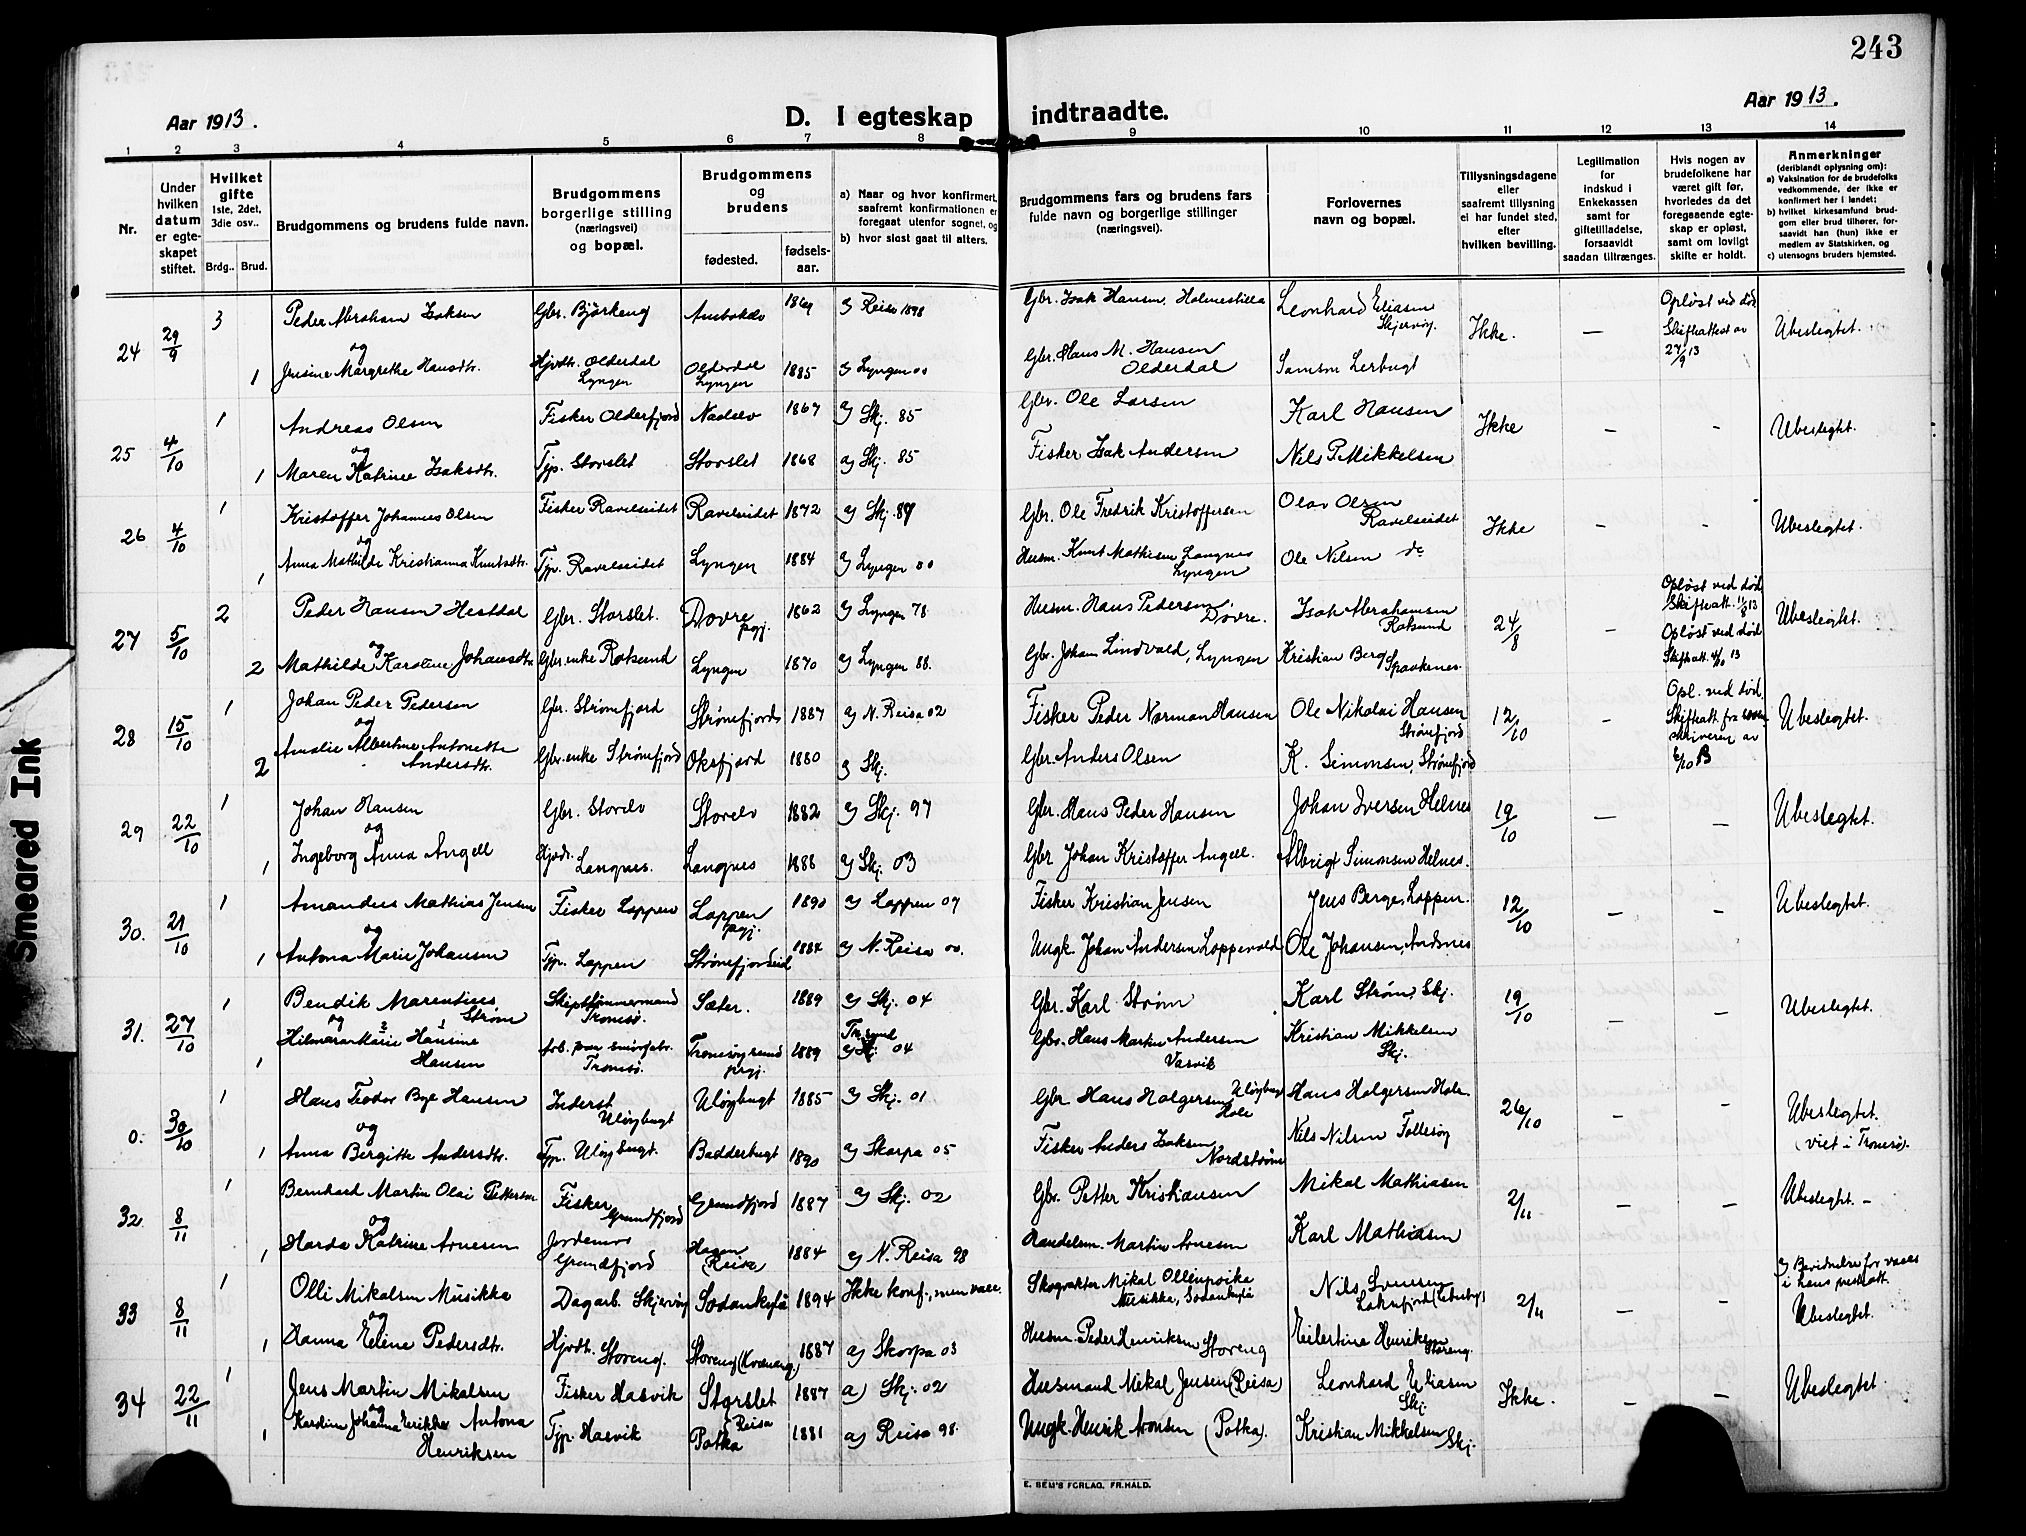 243
Aar 1913.
D. I egteskap indtraadte.
Aar 1913.
1 2 3 4 5 6 7 8 9 10 11 12 13 14
Nr.
Under hvilken datum er egteskapet stiftet.
Hvilket gifte 1ste, 2det, 3die osv..
Brdg.. Brud.
Brudgommens og brudens fulde navn.
Brudgommens borgerlige stilling (næringsvei) og bopæl.
Brudgommens og brudens
fødested. fødselsaar.
a) Naar og hvor konfirmert, saafremt konfirmationen er foregaat utenfor sognet, og
b) hvor sidst gaat til alters.
Brudgommens fars og brudens fars fulde navn og borgerlige stillinger (næringsvei).
Forlovernes navn og bopæl.
Tillysningsdagene eller saafremt tillysning ei har fundet sted, efter hvilken bevilling.
Legitimation for indskud i Enkekassen samt for giftetilladelse, forsaavidt saadan tiltrænges.
Hvis nogen av brudefolkene har været gift før, hvorledes da det foregaaende egteskap er opløst, samt om lovligt skifte er holdt.
Anmerkninger (deriblandt oplysning om):
a) Vaksination for de brudefolks vedkommende, der ikke er konfirmert her i landet;
b) hvilket kirkesamfund brudgom eller brud tilhører, forsaavidt han (hun) ikke er medlem av Statskirken, og
c) utensogns bruders hjemsted.
24 29/9 3 Peder Abraham Isaksen Gbr. Bjørkeng 1869 a) Reisa 1898 Gbr. Isak Hansen, Holmestilla Leonhard Eliasen Skjervøy. Ikke. — Opløst ved død Skifteattest av 27/9 13 Ubeslegtet.
og
1 Jensine Margrethe Hansdtr. Hjdtr. Olderdal Lyngen Olderdal Lyngen 1885 a) Lyngen 00 Gbr. Hans M. Hansen Olderdal Samson Lerbugt
25 4/10 1 Andreas Olsen Fisker Olderfjord 1867 a) Skj. 85 Gbr. Ole Larsen Karl Hansen Ikke — - Ubeslegtet.
og
1 Maren Katrine Isaksdtr. Tjp. Storslet Storslet 1868 a) Skj. 85 Fisker Isak Andersen Nils P Mikkelsen
26 4/10 1 Kristoffer Johannes Olsen Fisker Ravelseidet Ravelseidet 1872 a) Skj. 87 Gbr. Ole Fredrik Kristoffersen Olav Olsen Ravelseidet Ikke — - Ubeslegtet.
og
1 Anna Mathilde Kristianna Knutsdtr. Tjp. Ravelseidet Lyngen 1884 a) Lyngen 00 Husm. Knut Mathisen Langnes Lyngen Ole Nilsen do
27 5/10 2 Peder Hansen Hestdal Gbr. Storslet. Dovre pgj. 1862 a) Lyngen 78 Husm. Hans Pedersen, Dovre. Isak Abrahamsen Rotsund 24/8 — Opløst ved død Skifteatt. 11/8 13 Ubeslegtet.
og
2 Mathilde Karoline Johansdtr Gbr.enke Rotsund Lyngen 1870 a) Lyngen 88. Gbr. Johan Lindvald, Lyngen Kristian Berg Spaakenes. Opløst ved død Skifteatt. 4/10 13
28 15/10 1 Johan Peder Pedersen Gbr. Strømfjord Strømfjord 1887 a) N. Reisa 02 Fisker Peder Norman Hansen Ole Nikolai Hansen Strømfjord 12/10 — Opl. ved død. Skifteatt. fra sorenskriveren av 6/10 13 Ubeslegtet.
og
2 Amalie Albertine Antonette Andersdtr. Gbr.enke Strømfjord Oksfjord 1880 a) Skj. Gbr. Anders Olsen K. Simonsen, Strømfjord
29 22/10 1 Johan Hansen Gbr. Storelv Storelv 1882 a) Skj. 97 Gbr. Hans Peder Hansen Johan Iversen Helnes 19/10 — — Ubeslegtet.
og
1 Ingeborg Anna Angell Hjdtr. Langnes. Langnes 1888 a) Skj. 03 Gbr Johan Kristoffer Angell. Albrigt Simonsen Helnes.
30. 21/10 1 Amandus Mathias Jensen Fisker Loppen Loppen pgj. 1890 a) Loppen 07 Fisker Kristian Jensen Jens Berge, Loppen. 12/10 — — Ubeslegtet.
og
1 Antona Marie Johansen Tjp. Loppen Strømfjordeid 1884 a) N. Reisa 00. Ungk. Johan Andersen Loppevold Ole Johansen, Andsnes
31. 27/10 1 Bendik Marentius Strøm Skipstømmermand Tromsø. Sæter. 1889 a) Skj. 04 Gbr. Karl Strøm Karl Strøm, Skj. 19/10 — — Ubeslegtet.
og
1 Hilmara Marie Hansine Hansen Tromsø. Tromsøysund pgj. 1889 a) Skj. 04 Gbr. Hans Martin Andersen Vasvik Kristian Mikkelsen Skj.
0. 30/10 1 Hans Teodor Bye Hansen Inderst Uløybugt Uløybugt 1885 a) Skj. 01 Gbr Hans Holgersen Uløybugt Hans Holgersen 26/10 — — Ubeslegtet. (viet i Tromsø).
og
1 Anna Bergitte Andersdtr. Tjp. Uløybugt. Badderbugt 1890 a) Skorpa 05 Fisker Anders Isaksen Nordstrøm Nils Nilsen Follesøy
32. 8/11 1 Bernhard Martin Olai Pettersen Fisker Grundfjord Grundfjord 1887 a) Skj. 02 Gbr. Petter Kristiansen Mikal Mathiasen 2/11 — — Ubeslegtet. –
og
1 Harda Katrine Arnesen Jordemor Grundfjord (Reisa) 1884 a) N. Reisa 98 Handelsm. Martin Arnesen Karl Mathiasen
33 8/11 1 Olli Mikalsen Musikka Dagarb. Skjervøy Sodankylä 1894 Ikke konf., men vacc. Skogvokter Mikal Musikka, Sodankylä Nils 2/11 — — a) Bevidnelse for vacc. i hans presteatt. Ubeslegtet.
og
1 Hanna Eline Pedersdtr. Hjdtr. Storeng. Storeng (Kvænang.) 1887 a) Skorpa 03 Husm. Peder Henriksen Storeng Eilertine Henriksen Storeng.
34 22/11 1 Jens Martin Mikalsen Fisker Hasvik Storslet Reisa 1887 a) Skj. 02 Husmand Mikal Jensen (Reisa) Leonhard Eliasen Skj. Ikke. — — Ubeslegtet
og
1 Karoline Johanna Antona Henriksen Tjp. Hasvik Potka 1881 a) Reisa 98. Ungk. Henrik Aronsen (Potka). Kristian Mikkelsen Skj.
E. SEM'S FORLAG. FR.HALD.
Smeared Ink